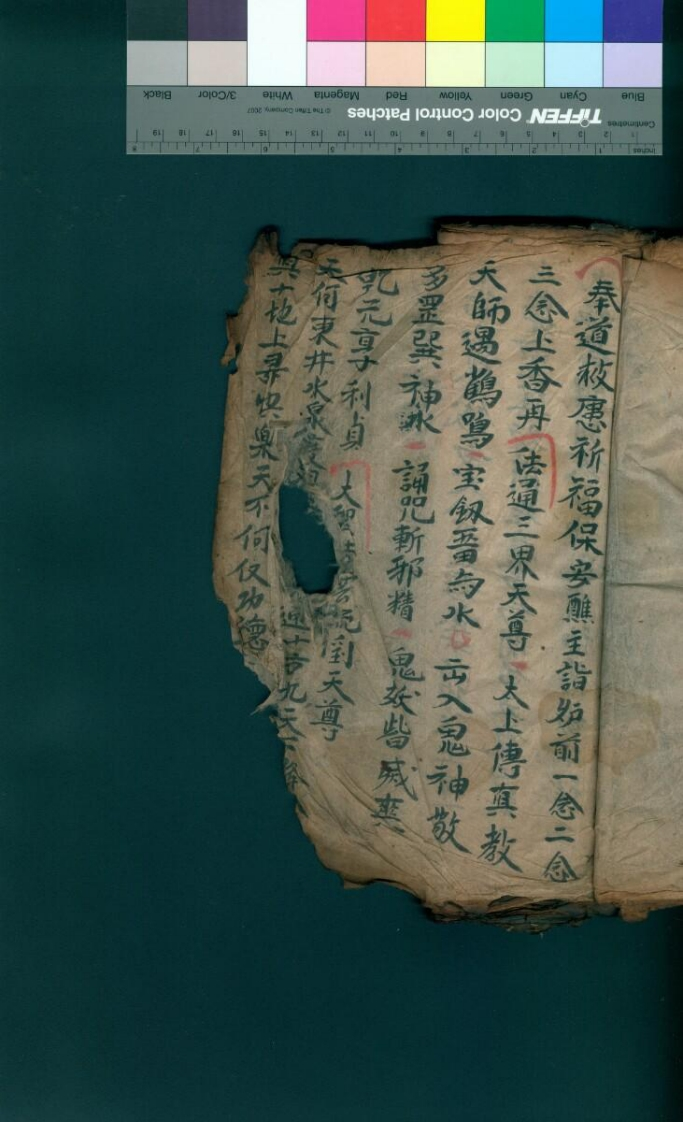 奉道救患祈福保安醮主詣炉前一念二念
三念上香再法通三界天尊太上傳真教
天師遇鶴鳴宝釼噀為水步入鬼神敬
多罡巽神水誦咒斬邪精鬼妖皆滅爽
乾元亨利貞大聖
天尊
天何東井水泉
十方九天
與十地上昇快樂天不何仅功德
Blue Cyan Green Yellow Red Magenta White 3/Color Black
TIFFEN Color Control Patches © The Tiffen Company, 2007
Centimetres 1 2 3 4 5 6 7 8 9 10 11 12 13 14 15 16 17 18 19
Inches 1 2 3 4 5 6 7 8